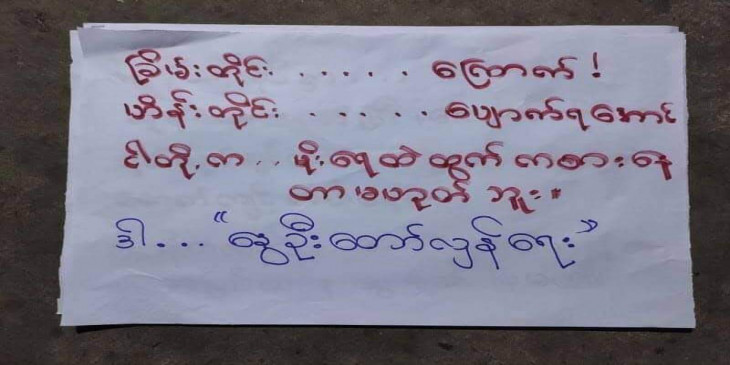 ခြိမ်းတိုင်း ...... ကြောက်!
ဟိန်းတိုင်း ...... ပျောက်ရအောင်
ငါတို့က .. မိုးရေထဲထွက်ကစားနေ
တာမဟုတ်ဘူး။
ဒါ ... "နွေဦးတော်လှန်ရေး"